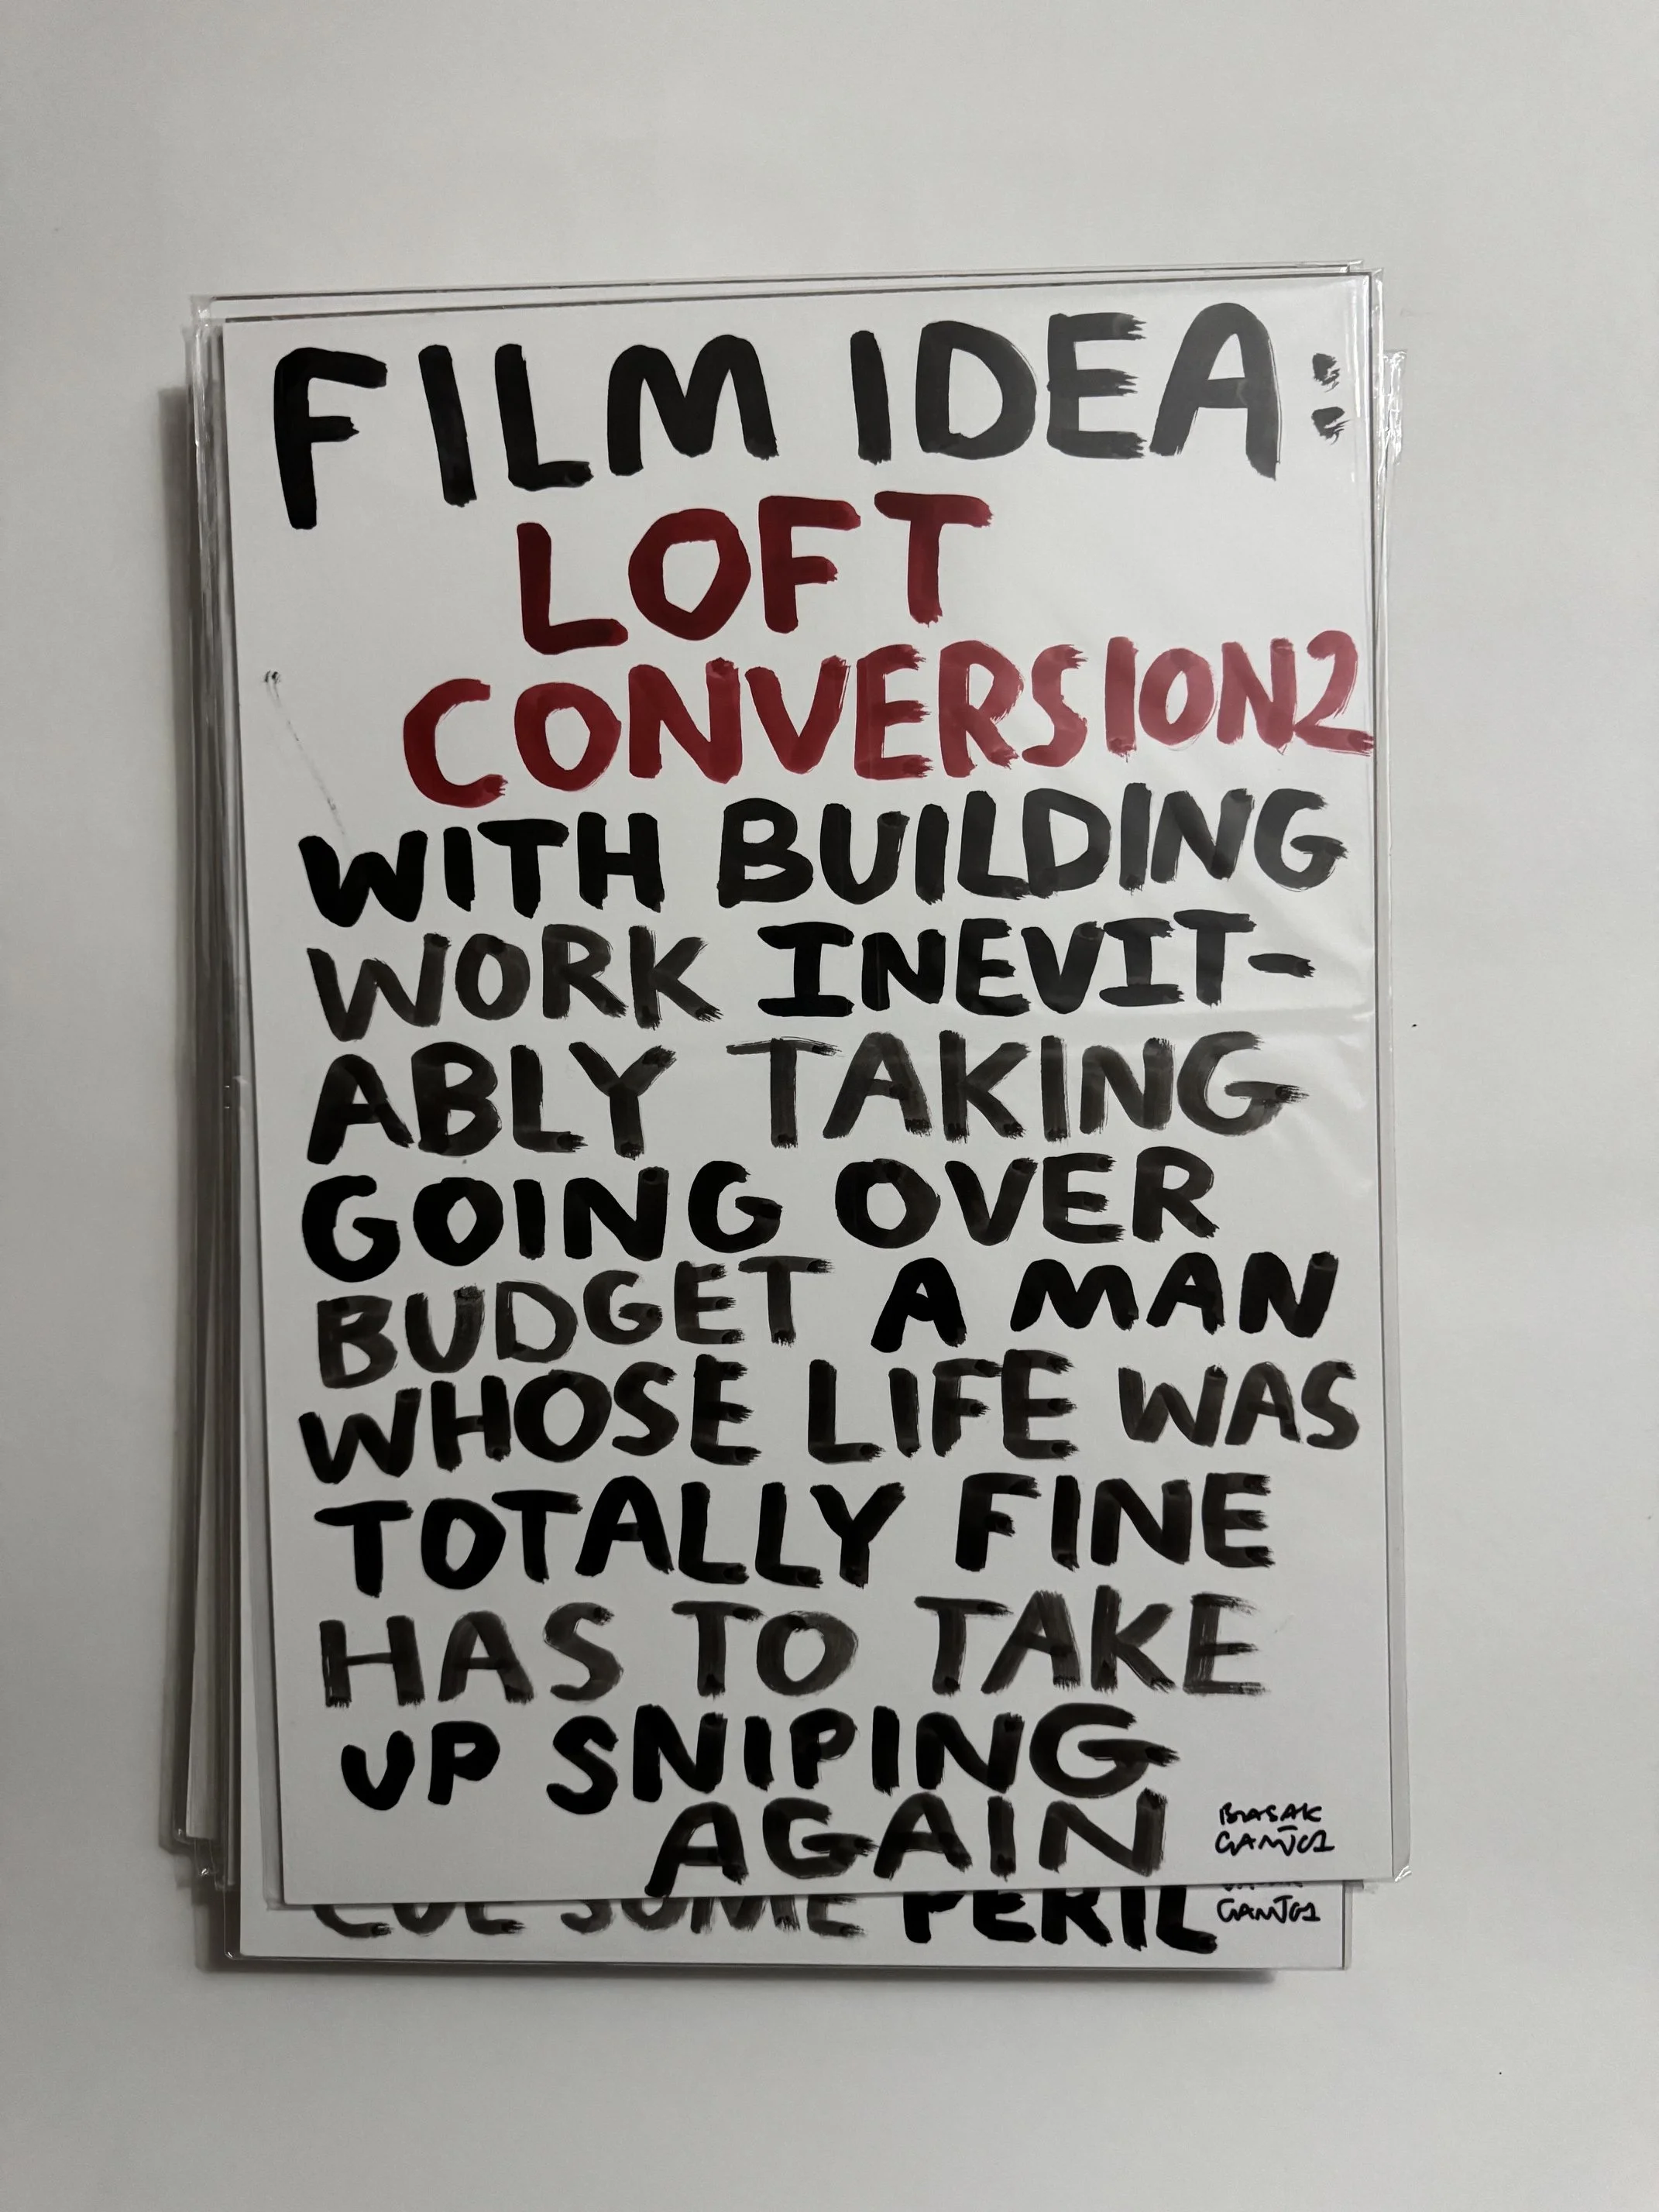 FILM IDEA:
LOFT
CONVERSION2
WITH BUILDING
WORK INEVIT-
ABLY TAKING
GOING OVER
BUDGET A MAN
WHOSE LIFE WAS
TOTALLY FINE
HAS TO TAKE
UP SNIPING
AGAIN
SOME PERIL